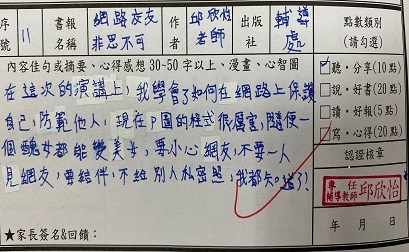 序號 11 書報名稱 網路交友非思不可 作者 邱欣怡老師 出版社 輔導處 點數類別(請勾選)
內容佳句或摘要、心得感想 30-50 字以上、漫畫、心智圖
在這次的演講上,我學會了如何在網路上保護
自己,防範他人,現在P圖的程式很厲害,隨便一
個醜女都能變美女,要小心網友,不要一人
見網友,要結伴,不給別人私密照,我都知道了!
聽・分享(10點)
說・好書(20點)
讀・好報(5點)
寫・心得(20點)
認證核章
專任輔導教師 邱欣怡
年 月 日
★家長簽名&回饋: